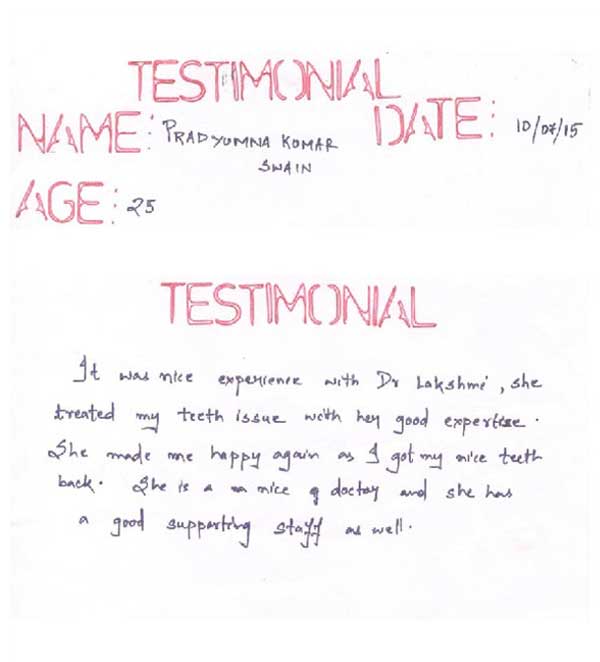 TESTIMONIAL
NAME: PRADYUMNA KUMAR DATE: 10/07/15
SWAIN
AGE: 25
TESTIMONIAL
It was nice experience with Dr Lakshmi, she
treated my teeth issue with her good expertise.
She made me happy again as I got my nice teeth
back. She is a nice doctor and she has
a good supporting staff as well.